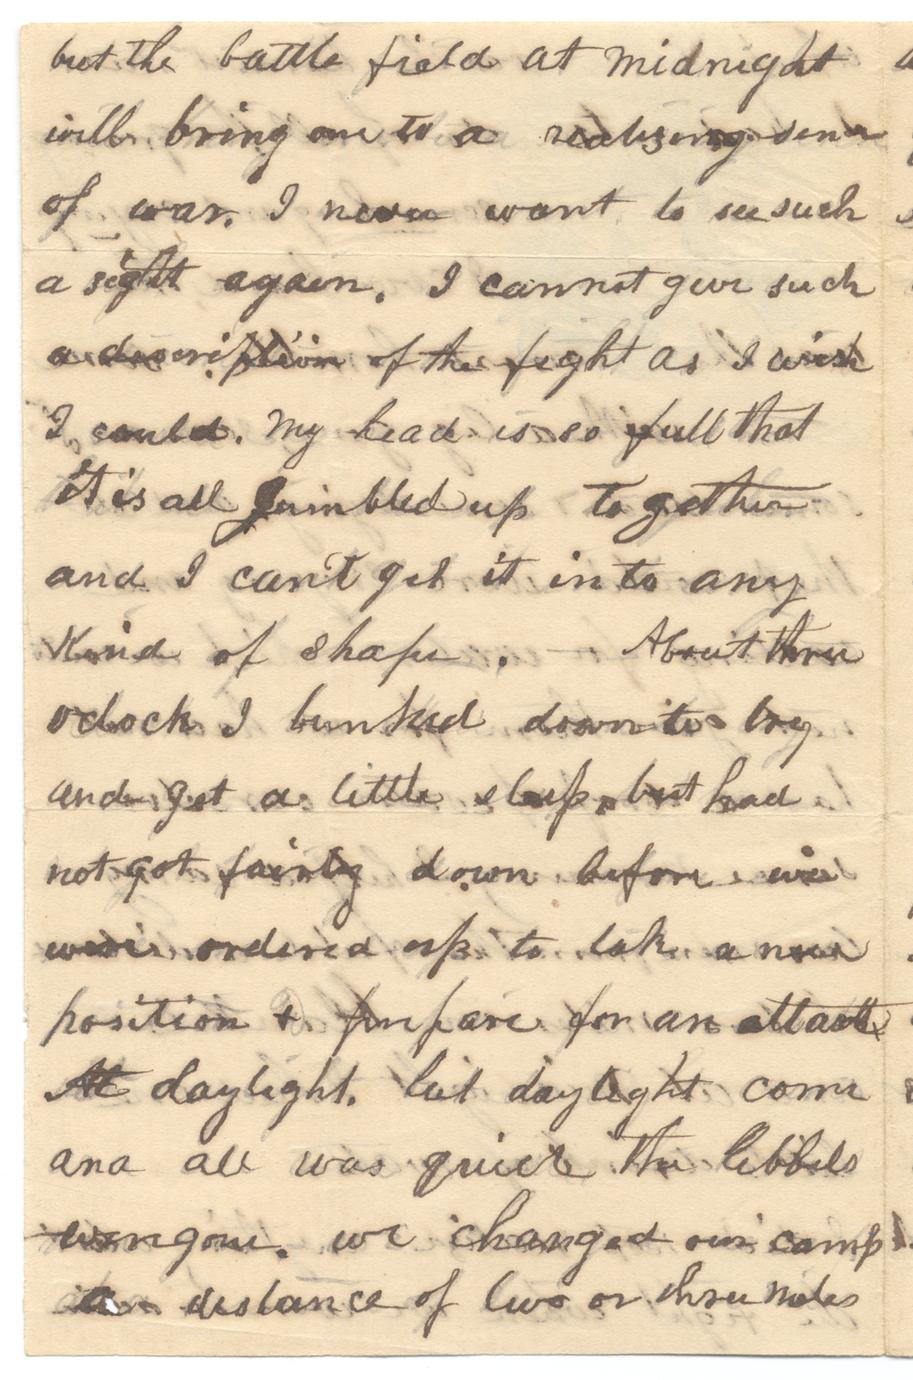 but the battle field at midnight
will bring one to a realizing sense
of war. I never want to see such
a sight again. I cannot give such
a description of the fight as I wish
I could. My head is so full that
it is all Jumbled up together
and I cant get it into any
Kind of shape. — About three
oclock I bunked down to try
and get a little sleep, but had
not got fairly down before we
were ordered up to take a new
position & prepare for an attack
At daylight. but daylight come
and all was quiet the Rebbels
were gone. we changed our camp
a distance of two or three miles